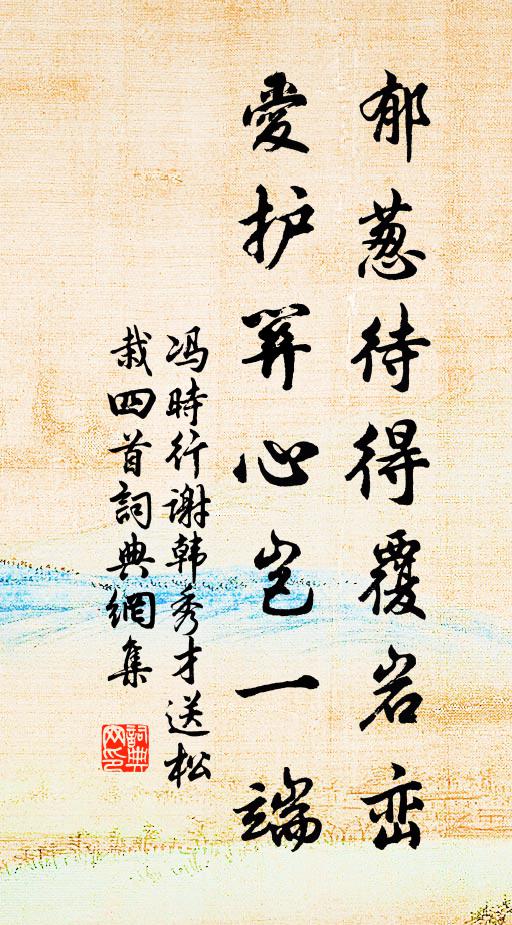 郁葱待得覆岩峦
愛护關心岂一端
冯時行谢韩秀才送松
栽四首詞典網集
詞典
网印